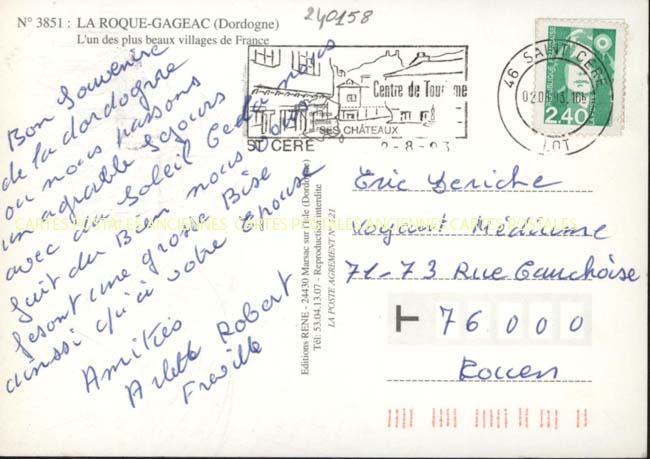 240158
N° 3851 : LA ROQUE-GAGEAC (Dordogne)
L'un des plus beaux villages de France
Bon Souvenire
de la dordogne
ou nous passons
un agreable Sejours
avec du Soleil
fait du Bien nous vous
fesont une grosse Bise
ainssi qu'à votre Epouse
Amitiés
Arlette Robert
Freville
Centre de Tourisme
SES CHÂTEAUX
ST CERE
2-8-93
46 SAINT CERE
LOT
2,40
Editions RENE - 24430 Marsac sur l'Isle (Dordogne)
Tél: 53.04.13.07 - Reproduction interdite
LA POSTE AGREMENT N°
Eric Deriche
Voyant Médiume
71-73 Rue Cauchoise
T 76000
Rouen
CARTES POSTALES ANCIENNES CARTES POSTALES ANCIENNES CARTES POSTALES